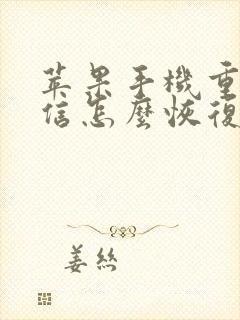 苹果手機重
信怎麼恢復
姜絲